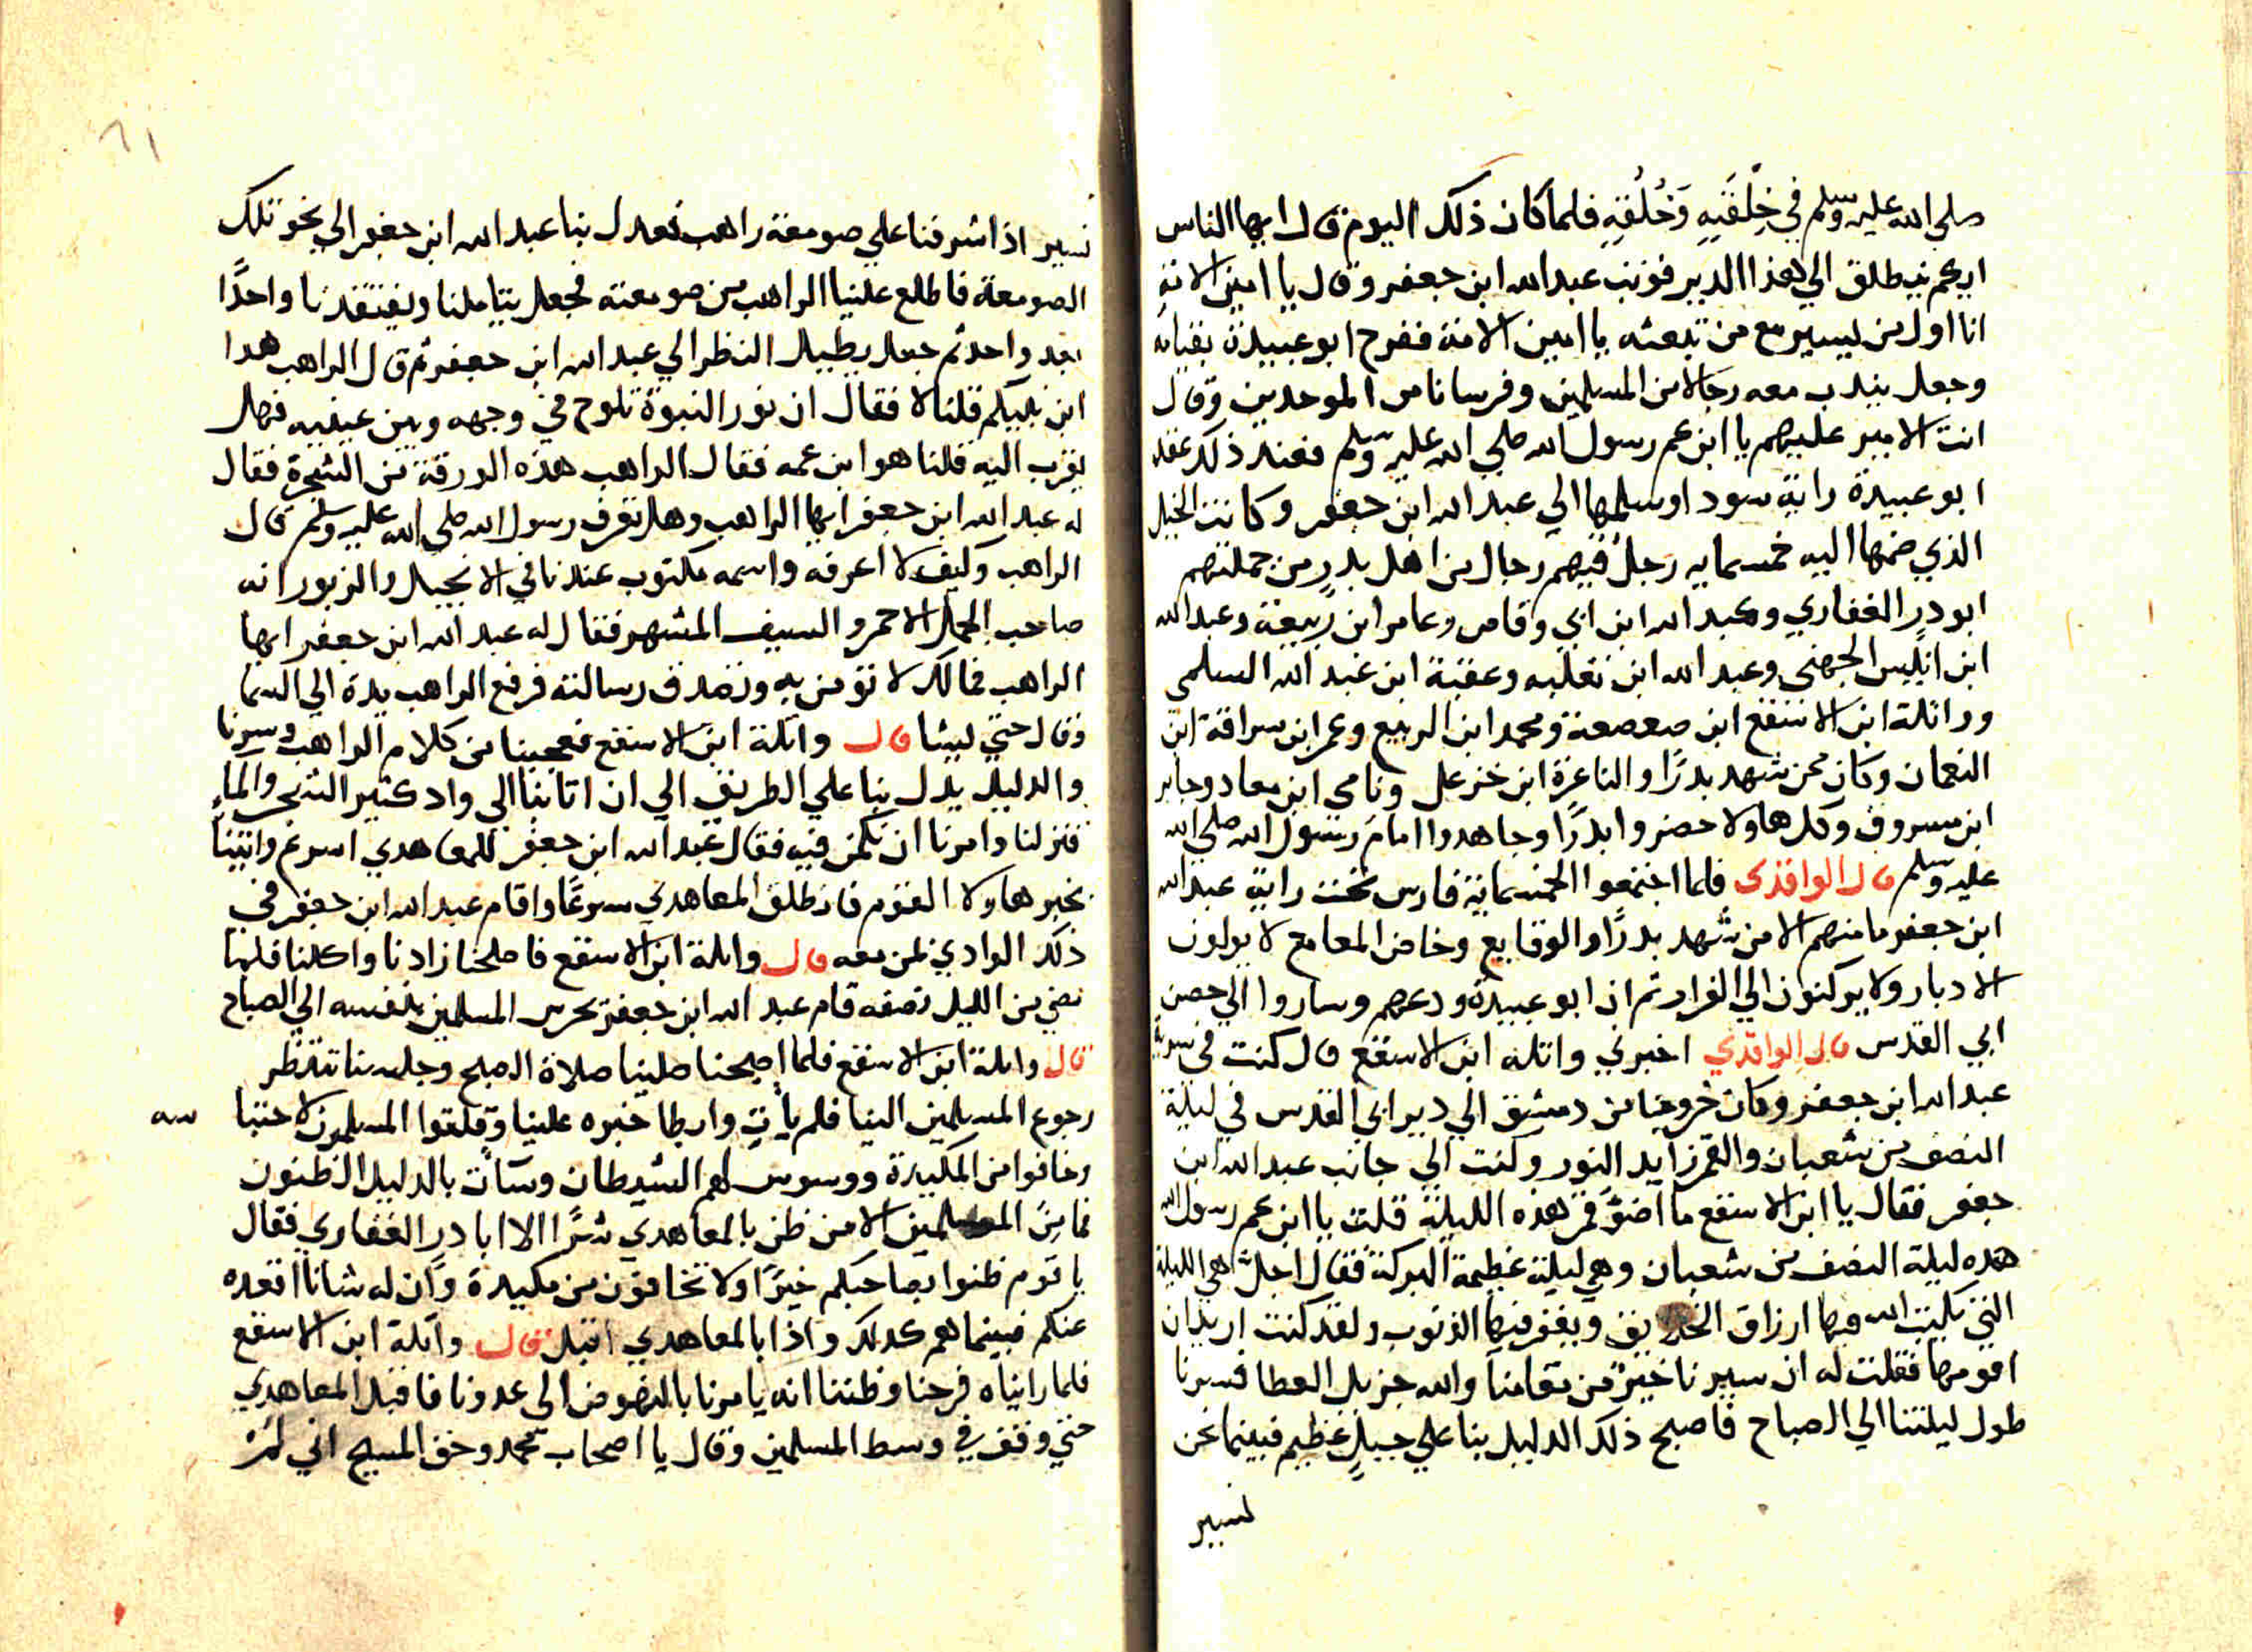 صلي الله عليه وسلم في خِلْقَتِهِ وَخُلُقِهِ فلما كان ذلك اليوم قال ايها الناس
ايكم ينطلق الي هذا الدير فوثب عبد الله ابن جعفر وقال يا امين الامة
انا اول من يسير مع من تبعثه يا امين الامة ففرح ابو عبيدة بفيامه
وجعل يندب معه رجالا من المسلمين وفرسانا من الموحدين وقال
انت الامير عليهم يا ابن عم رسول الله صلي الله عليه وسلم فعند ذلك عقد
ابو عبيدة راية سودا وسلمها الي عبد الله ابن جعفر وكانت الخيل
الذي ضمها اليه خمسمايه رجل فيهم رجال من اهل بدرٍ من جملتهم
ابو در الغفاري وعبد الله ابن ابي وقاص وعامر ابن ربيعة وعبد الله
ابن انيس الجهني وعبد الله ابن ثعلبه وعقبة ابن عبد الله السلمي
وواثلة ابن الاسقع ابن صعصعة ومحمد ابن الربيع وعمر ابن سراقة ابن
النعمان وكان ممن شهد بدرًا والناعزة ابن خزعل ونامي ابن معاد وجابر
ابن مسروق وكل هاولا حضروا بدرًا وجاهدوا امام رسول الله صلي الله
عليه وسلم قال الواقدي فلما اجتمعوا الخمسماية فارس تحت راية عبد الله
ابن جعفر ما منهم الا من شهد بدرًا والوقايع وخاض المعامع لا يولون
الادبار ولا يركنون الي الفرار ثم ان ابو عبيدة ودعهم وساروا الي حصن
ابي القدس قال الواقدي اخبرني واثله ابن الاسقع قال كنت في سرية
عبد الله ابن جعفر وكان خروجنا من دمشق الي دير ابي القدس في ليلة
النصف من شعبان والقمر زايد النور وكنت الي جانب عبد الله ابن
جعفر فقال يا ابن الاسقع ما اضوّ قمر هذه الليلة قلت يا ابن عم رسول الله
هده ليلة النصف من شعبان وهي ليلة عظيمة البركة فقال اجل هي الليلة
التي يكتب الله فيها ارزاق الخلايق ويغفر فيها الذنوب ولقد كنت اريد ان
اقومها فقلت له ان سيرنا خيرٌ من مقامنا والله جزيل العطا فسرنا
طول ليلتنا الي الصباح فاصبح ذلك الدليل بنا علي جبلٍ عظيم فبينما نحن
نسير
٦١
نسير اذا شرفنا علي صومعة راهب فعدل بنا عبد الله ابن جعفر الي نحو تلك
الصومعة فاطلع علينا الراهب من صومعته فجعل يتاملنا ويفتقدنا واحدًا
بعد واحد ثم جعل يطيل النظر الي عبد الله ابن جعفر ثم قال الراهب هدا
ابن نبيكم قلنا لا فقال ان نور النبوة تلوح في وجهه وبين عينيه فهل
يقرب اليه قلنا هو ابن عمه فقال الراهب هذه الورقة من الشجرة فقال
له عبد الله ابن جعفر ايها الراهب وهل تعرف رسول الله صلي الله عليه وسلم قال
الراهب وكيف لا اعرفه واسمه مكتوب عندنا في الانجيل والزبور انه
صاحب الجمل الاحمر والسيف المشهر فقال له عبد الله ابن جعفر ايها
الراهب فما لك لا تؤمن به وتصدق رسالته فرفع الراهب يدة الي السما
وقال حتي يشا قال واثلة ابن الاسقع فعجبنا من كلام الراهب وسرنا
والدليل يدل بنا علي الطريق الي ان اتا بنا الي واد كثير الشجر والماءِ
فنزلنا وامرنا ان نكمن فيه فقال عبد الله ابن جعفر للمعاهدي اسرع واتينا
بخبر هاولا القوم فانطلق المعاهدي سرعًا واقام عبد الله ابن جعفر في
ذلك الوادي بمن معه قال واثلة ابن الاسقع فاصلحنا زادنا واكلنا فلما
مضي من الليل نصفه قام عبد الله ابن جعفر يحرس المسلمين بنفسه الي الصباح
قال واثلة ابن الاسقع فلما اصبحنا صلينا صلاة الصبح وجلسنا ننتظر
رجوع المسلمين الينا فلم يأت وابطا خبره علينا وقلقوا المسلمون لاحتبا سه
وخافوا من المكيدة ووسوس لهم الشيطان وسآت بالدليل الظنون
فما من المسلمين الا من ظن بالمعاهدي شرًا الا ابا در الغفاري فقال
يا قوم ظنوا بصاحبكم خيرًا ولا تخافون من مكيدة وان له شانا اقعده
عنكم فبينما هم كدلك واذا بالمعاهدي اقبل قال واثلة ابن الاسقع
فلما رايناه فرحنا وظننا انه يامرنا بالنهوض الي عدونا فاقبل المعاهدي
حتي وقف في وسط المسلمين وقال يا اصحاب محمد وحق المسيح اني لمْ